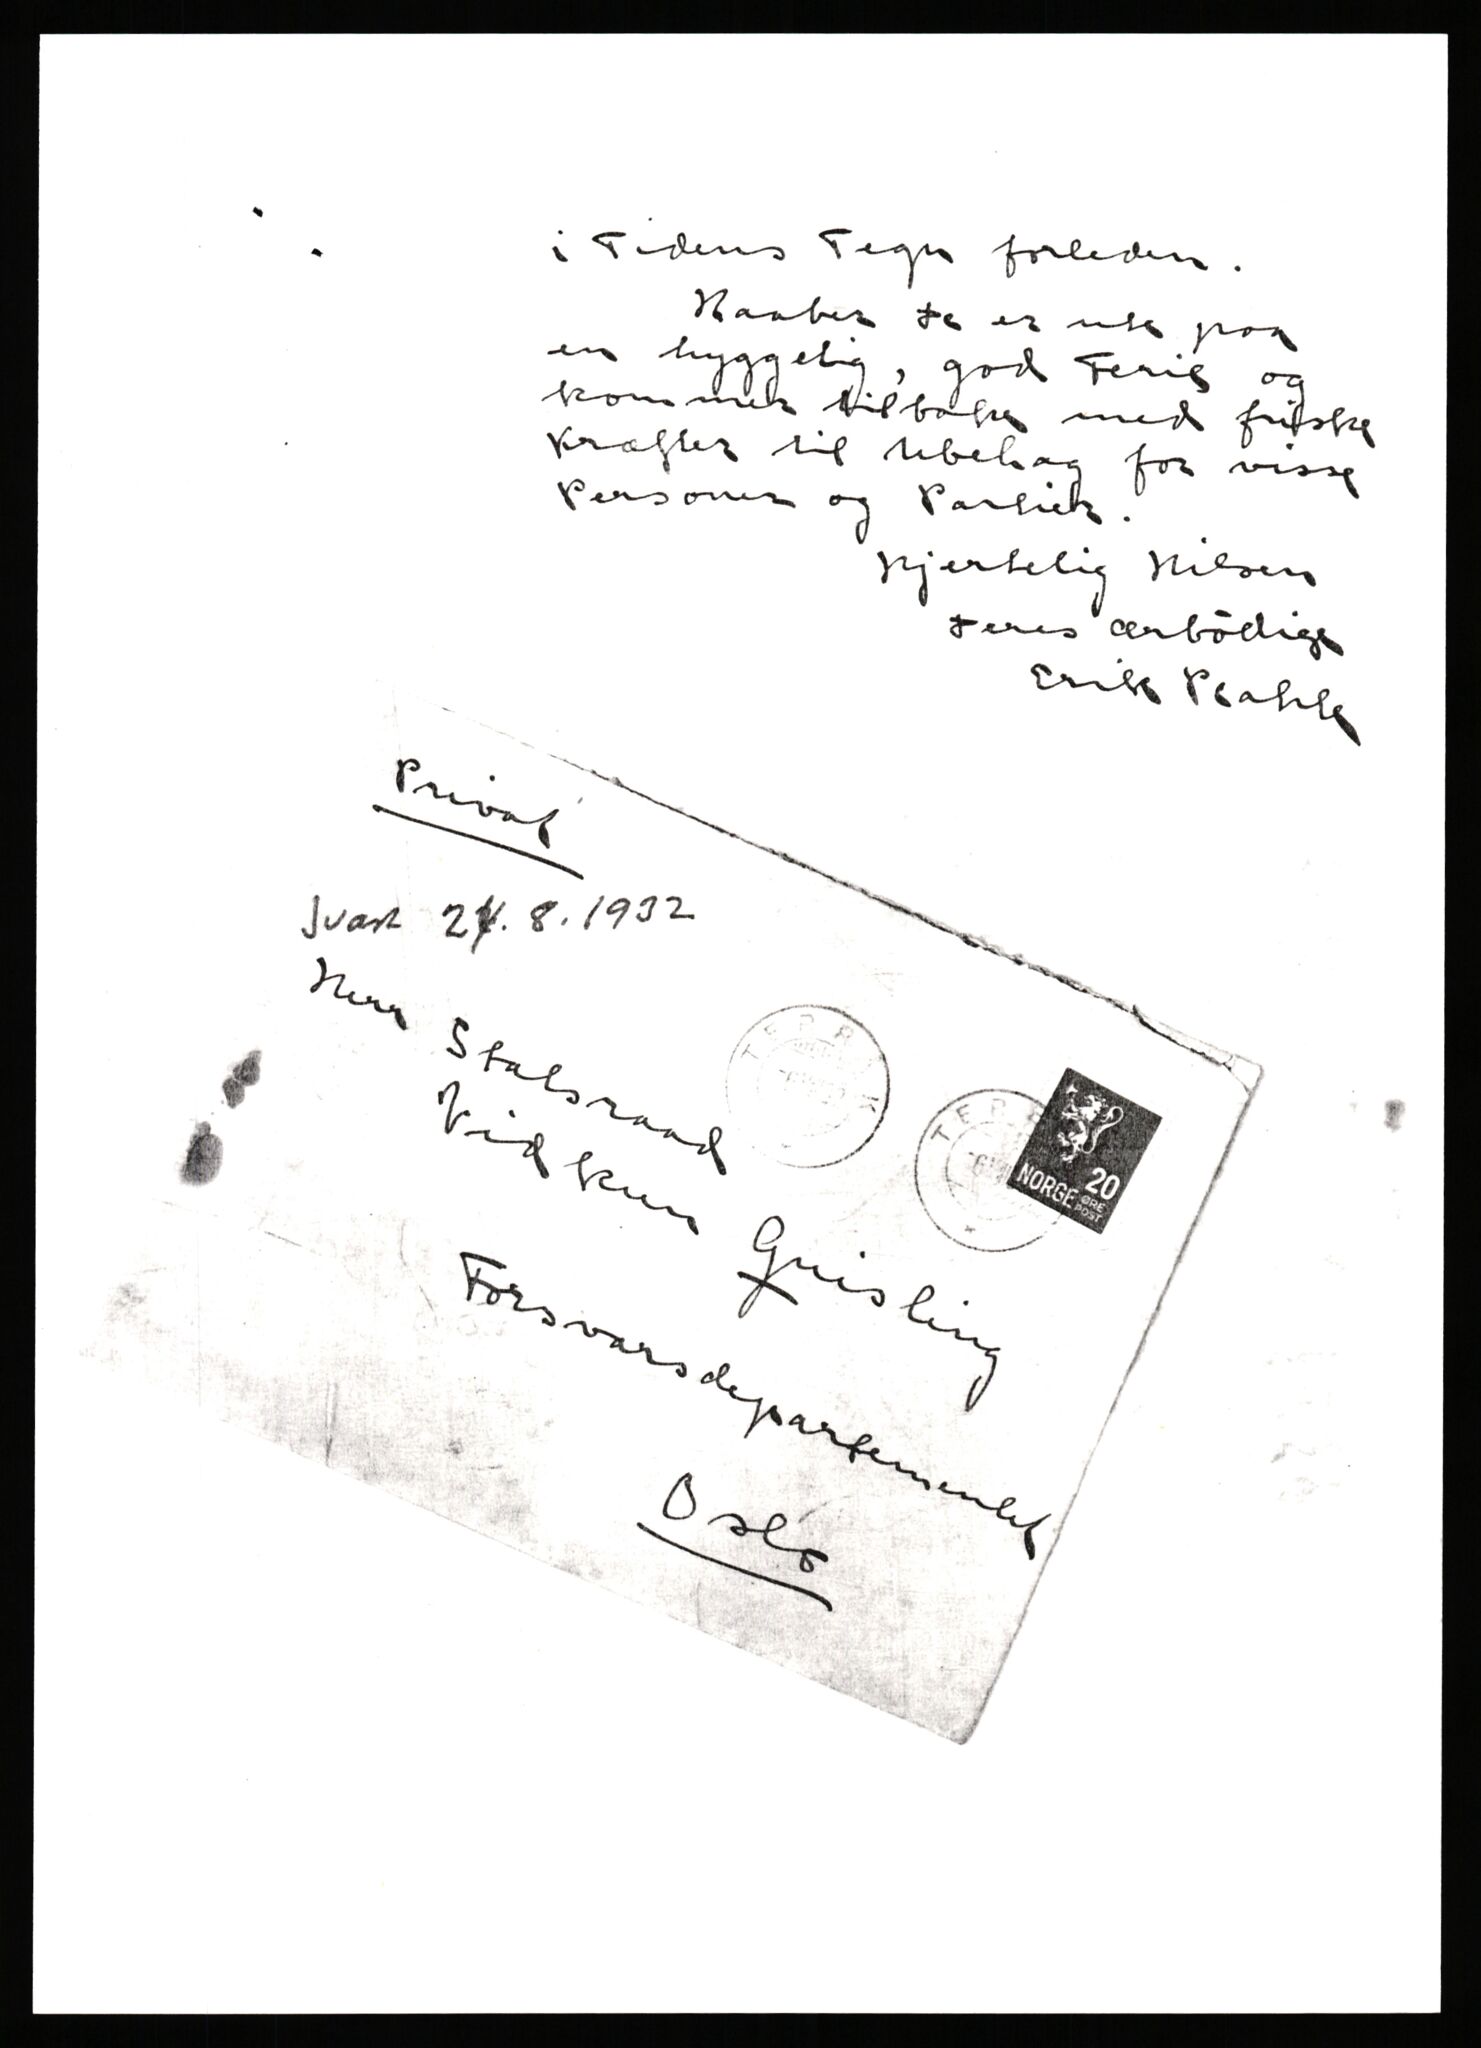 i Tidens Tegn forleden.
Haaber De er ute paa
en hyggelig, god Ferie og
kommer tilbake med friske
Kræfter til Ubehag for visse
Personer og Partier.
Hjertelig Hilsen
Deres ærbödige
Erik
Privat
Svart 24.8.1932
Herr Statsraad
Vidkun Quisling
Forsvarsdepartementet
Oslo
NORGE 20
ØRE
POST